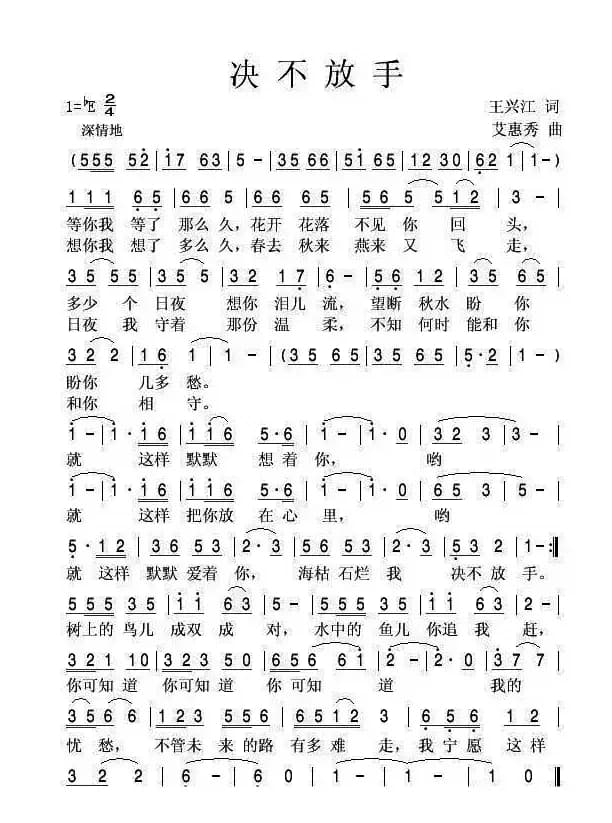 决不放手
1=♭E 2/4
王兴江 词
深情地
艾惠秀 曲
(555 52 | 17 63 | 5 - | 35 66 | 51 65 | 12 30 | 62 1 | 1 -)
111 65 | 66 5 | 66 65 | 565 5 | 512 | 3 - |
等你我 等了 那么 久，花开 花落 不见 你 回 头，
想你我 想了 多么 久，春去 秋来 燕来 又 飞 走，
35 55 | 35 5 | 32 17 | 6 - | 56 12 | 35 65 |
多少 个 日夜 想你 泪儿 流，望断 秋水 盼 你
日夜 我 守着 那份 温 柔，不知 何时 能和 你
322 | 16 1 | 1 - | (35 35 | 63 63 | 5·2 | 1 -)
盼你 几多 愁。
和你 相 守。
1 - | 1·16 | 116 | 5·6 | 1 - | 1·0 | 32 3 | 3 - |
就 这样 默默 想 着 你， 哟
1 - | 1·16 | 116 | 5·6 | 3 - | 3·0 | 65 3 | 5 - |
就 这样 把你放 在 心 里， 哟
5·12 | 335 53 | 2·3 | 55 33 | 2·3 | 53 2 | 1 - :‖
就 这样 默默 爱着 你， 海枯 石烂 我 决不 放 手。
555 35 | 11 63 | 5 - | 555 35 | 116 63 | 2 - |
树上的 鸟儿 成双 成 对，水中的 鱼儿 你追 我 赶，
321 10 | 323 50 | 656 61 | 2 - | 2·0 | 377 |
你可知 道 你可知 道 你可 知 道 我的
356 6 | 123 555 | 6512 3 | 3 6 | 656 | 55 |
忧 愁， 不管未 来的路 有多 难 走，我 宁愿 这样
32 2 | 2 - | 6 - | 60 | 1 - | 1 - | 1 - | 10 ‖